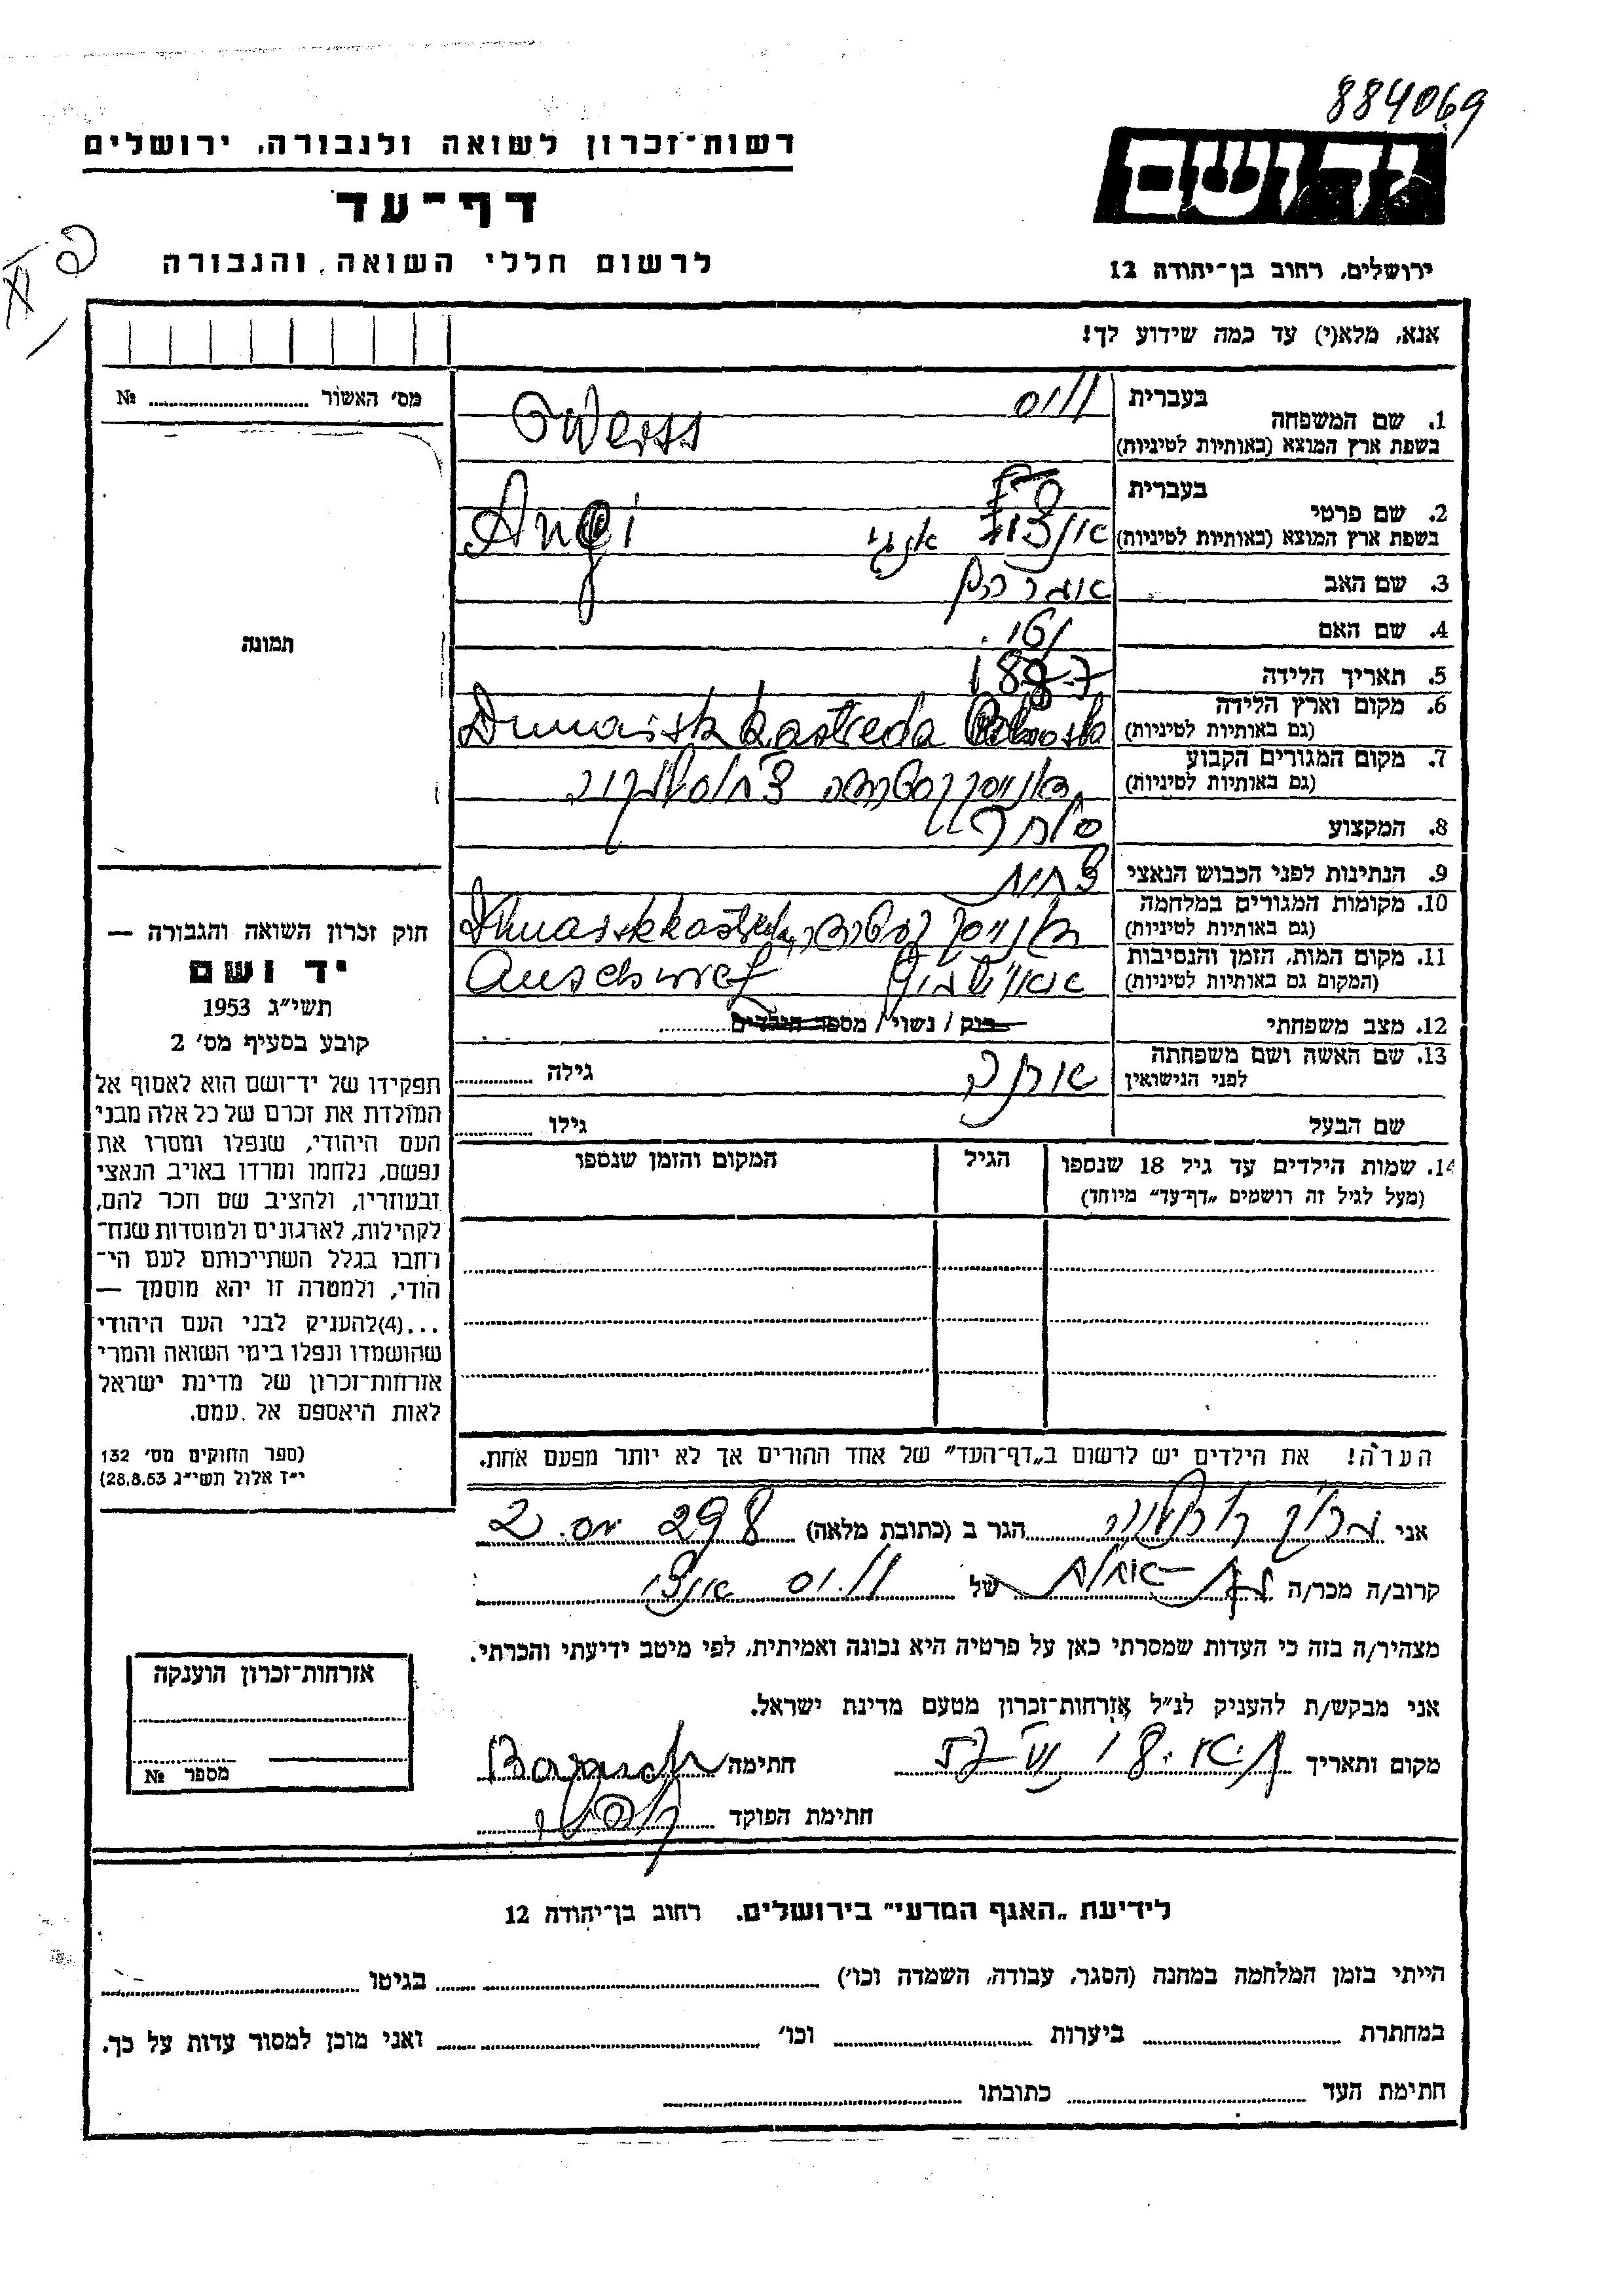 884069
רשות־זכרון לשואה ולגבורה, ירושלים
יד ושם
דף־עד
לרשום חללי השואה והגבורה
ירושלים, רחוב בן־יהודה 12
אנא, מלא(י) עד כמה שידוע לך!
מס׳ האשור № 
1. שם המשפחה בעברית וייס
בשפת ארץ המוצא (באותיות לטיניות) Weiss
2. שם פרטי בעברית
בשפת ארץ המוצא (באותיות לטיניות) Angi
3. שם האב אברהם
4. שם האם
5. תאריך הלידה 1887
6. מקום וארץ הלידה
(גם באותיות לטיניות) Dunaisk kastreda
7. מקום המגורים הקבוע
(גם באותיות לטיניות)
8. המקצוע סוחר
9. הנתינות לפני הכבוש הנאצי צ׳כית
10. מקומות המגורים במלחמה
(גם באותיות לטיניות)
11. מקום המות, הזמן והנסיבות
(המקום גם באותיות לטיניות) אושויץ Auschwitz
12. מצב משפחתי רוק / נשוי / מספר הילדים
13. שם האשה ושם משפחתה
לפני הנישואין גילה
שם הבעל גילו
14. שמות הילדים עד גיל 18 שנספו
(מעל לגיל זה רושמים „דף־עד” מיוחד)
הגיל
המקום והזמן שנספו
תמונה
חוק זכרון השואה והגבורה —
יד ושם
תשי״ג 1953
קובע בסעיף מס׳ 2
תפקידו של יד־ושם הוא לאסוף אל
המולדת את זכרם של כל אלה מבני
העם היהודי, שנפלו ומסרו את
נפשם, נלחמו ומרדו באויב הנאצי
ובעוזריו, ולהציב שם וזכר להם,
לקהילות, לארגונים ולמוסדות שנח־
רבו בגלל השתייכותם לעם הי־
הודי, ולמטרה זו יהא מוסמך —
...(4)להעניק לבני העם היהודי
שהושמדו ונפלו בימי השואה והמרי
אזרחות־זכרון של מדינת ישראל
לאות היאספם אל עמם.
(ספר החוקים מס׳ 132
י״ז אלול תשי״ג 28.8.53)
הערה! את הילדים יש לרשום ב„דף־העד” של אחד ההורים אך לא יותר מפעם אחת.
אני ברוך הגר ב (כתובת מלאה) 298
קרוב/ה מכר/ה של וייס
מצהיר/ה בזה כי העדות שמסרתי כאן על פרטיה היא נכונה ואמיתית, לפי מיטב ידיעתי והכרתי.
אני מבקש/ת להעניק לנ״ל אזרחות־זכרון מטעם מדינת ישראל.
מקום ותאריך חתימה Baruch
חתימת הפוקד
אזרחות־זכרון הוענקה
מספר №
לידיעת „האגף המדעי” בירושלים. רחוב בן־יהודה 12
הייתי בזמן המלחמה במחנה (הסגר, עבודה, השמדה וכו׳) בגיטו
במחתרת ביערות וכו׳ ואני מוכן למסור עדות על כך.
חתימת העד כתובתו